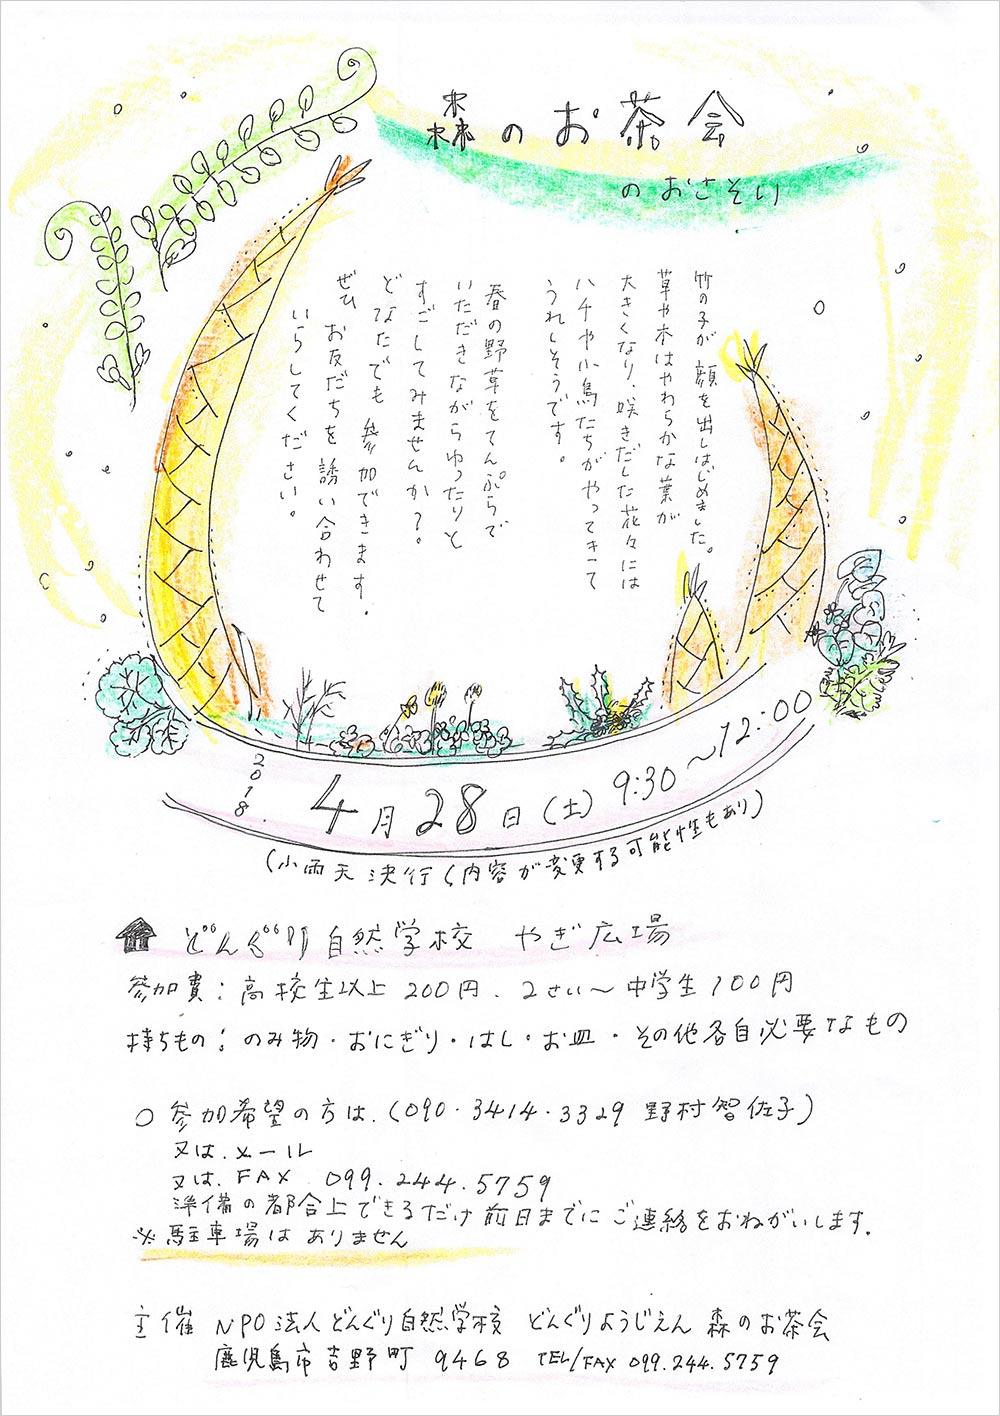 森のお茶会
のおさそい
竹の子が 顔を出しはじめました。
草や木はやわらかな葉が
大きくなり、咲きだした花々には
ハチや小鳥たちがやってきて
うれしそうです。
春の野草をてんぷらで
いただきながらゆったりと
すごしてみませんか？
どなたでも 参加できます。
ぜひ お友だちを 誘い合わせて
いらしてください。
2018.
4月28日(土) 9:30～12:00
(小雨天決行(内容が変更する可能性もあり)
どんぐり自然学校 やぎ広場
参加費：高校生以上 200円、2さい～中学生 100円
持ちもの：のみ物・おにぎり・はし・お皿・その他各自必要なもの
○ 参加希望の方は、(090・3414・3329 野村智佐子)
又は、メール
又は、FAX 099.244.5759
準備の都合上できるだけ前日までにご連絡をおねがいします。
※駐車場はありません
主催 NPO法人どんぐり自然学校 どんぐりようじえん 森のお茶会
鹿児島市吉野町 9468 TEL/FAX 099.244.5759